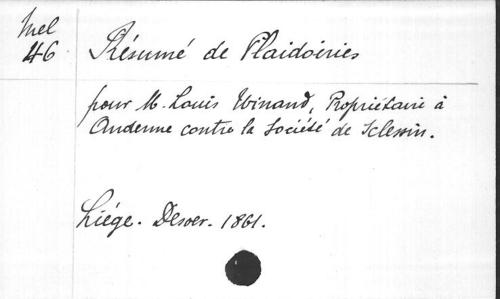 Mel
46
Résumé de Plaidoiries
pour M. Louis Winand, Propriétaire à
Andenne contre la Société de Sclessin.
Liége. Desoer. 1861.